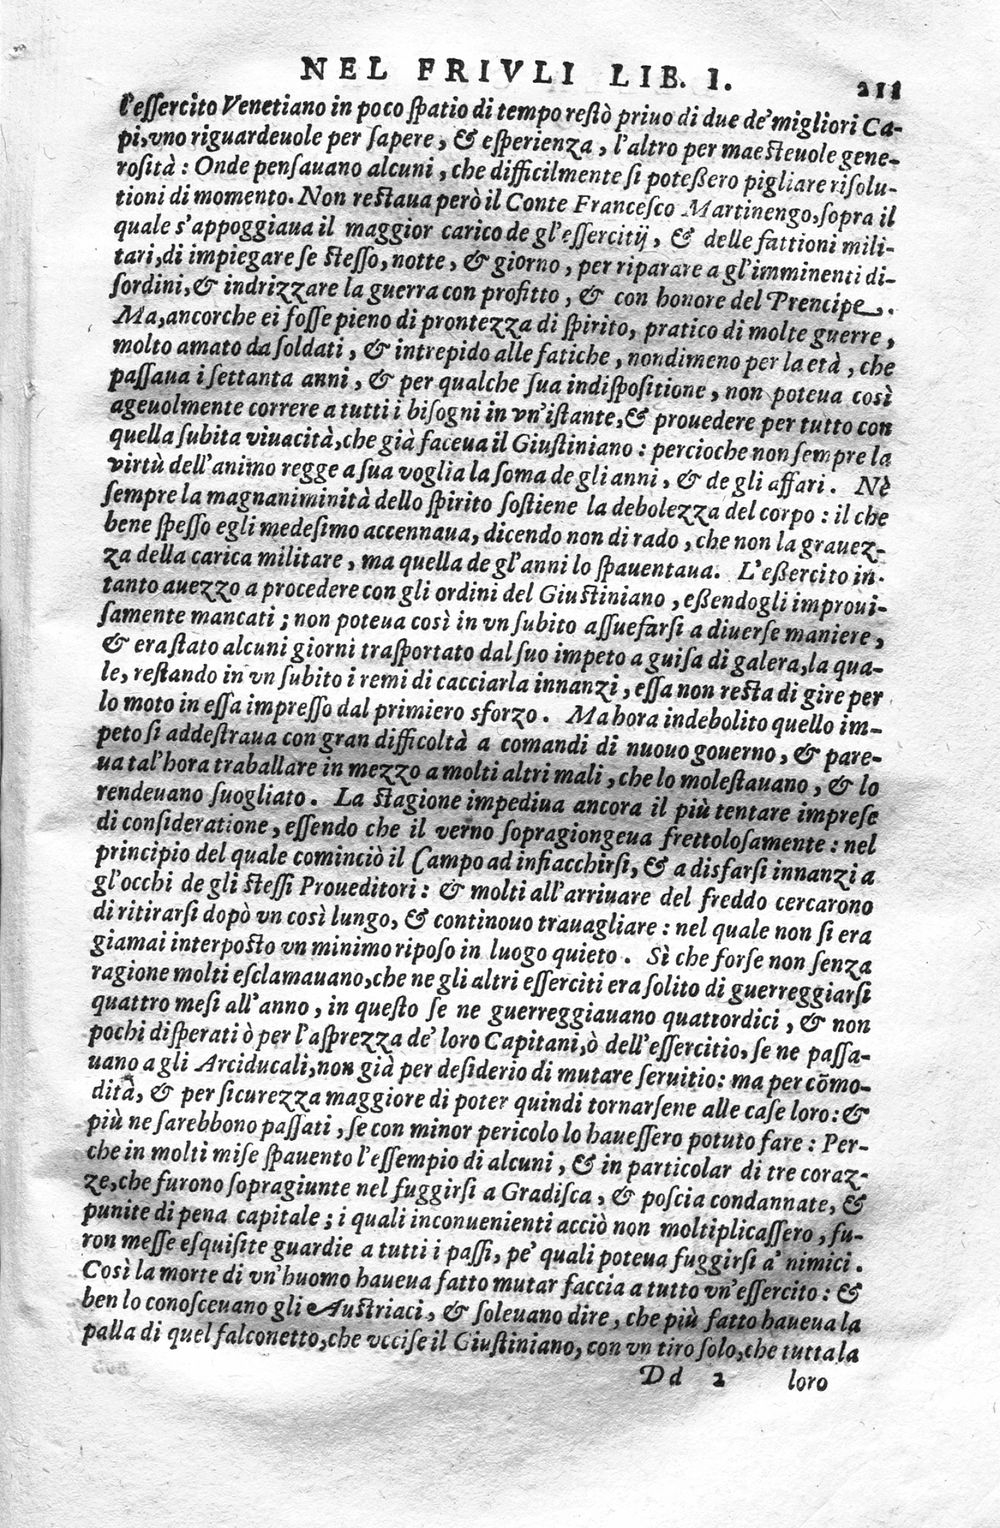 NEL FRIVLI LIB. I. 211
l'eſſercito Venetiano in poco ſpatio di tempo reſtò priuo di due de' migliori Ca-
pi, vno riguardeuole per ſapere, & eſperienza, l'altro per maeſteuole gene-
roſità: Onde penſauano alcuni, che difficilmente ſi poteßero pigliare riſolu-
tioni di momento. Non reſtaua però il Conte Franceſco Martinengo, ſopra il
quale s'appoggiaua il maggior carico de gl'eſſercitij, & delle fattioni mili-
tari, di impiegare ſe ſteſſo, notte, & giorno, per riparare a gl'imminenti di-
ſordini, & indrizzare la guerra con profitto, & con honore del Prencipe.
Ma, ancorche ei foſſe pieno di prontezza di ſpirito, pratico di molte guerre,
molto amato da ſoldati, & intrepido alle fatiche, nondimeno per la età, che
paſſaua i ſettanta anni, & per qualche ſua indiſpoſitione, non poteua così
ageuolmente correre a tutti i biſogni in vn'iſtante, & prouedere per tutto con
quella ſubita viuacità, che già faceua il Giuſtiniano: percioche non ſempre la
virtù dell'animo regge a ſua voglia la ſoma de gli anni, & de gli affari. Nè
ſempre la magnaniminità dello ſpirito ſoſtiene la debolezza del corpo: il che
bene ſpeſſo egli medeſimo accennaua, dicendo non di rado, che non la grauez-
za della carica militare, ma quella de gl'anni lo ſpauentaua. L'eßercito in-
tanto auezzo a procedere con gli ordini del Giuſtiniano, eßendogli improui-
ſamente mancati; non poteua così in vn ſubito aſſuefarſi a diuerſe maniere,
& era ſtato alcuni giorni traſportato dal ſuo impeto a guiſa di galera, la qua-
le, reſtando in vn ſubito i remi di cacciarla innanzi, eſſa non reſta di gire per
lo moto in eſſa impreſſo dal primiero sforzo. Ma hora indebolito quello im-
peto ſi addeſtraua con gran difficoltà a comandi di nuouo gouerno, & pare-
ua tal'hora traballare in mezzo a molti altri mali, che lo moleſtauano, & lo
rendeuano ſuogliato. La ſtagione impediua ancora il più tentare impreſe
di conſideratione, eſſendo che il verno ſopragiongeua frettoloſamente: nel
principio del quale cominciò il Campo ad infiacchirſi, & a disfarſi innanzi a
gl'occhi de gli ſteſſi Proueditori: & molti all'arriuare del freddo cercarono
di ritirarſi dopò vn così lungo, & continouo trauagliare: nel quale non ſi era
giamai interpoſto vn minimo ripoſo in luogo quieto. Sì che forſe non ſenza
ragione molti eſclamauano, che ne gli altri eſſerciti era ſolito di guerreggiarſi
quattro meſi all'anno, in queſto ſe ne guerreggiauano quattordici, & non
pochi diſperati ò per l'aſprezza de' loro Capitani, ò dell'eſſercitio, ſe ne paſſa-
uano a gli Arciducali, non già per deſiderio di mutare ſeruitio: ma per cõmo-
dità, & per ſicurezza maggiore di poter quindi tornarſene alle caſe loro: &
più ne ſarebbono paſſati, ſe con minor pericolo lo haueſſero potuto fare: Per-
che in molti miſe ſpauento l'eſſempio di alcuni, & in particolar di tre coraz-
ze, che furono ſopragiunte nel fuggirſi a Gradiſca, & poſcia condannate, &
punite di pena capitale; i quali inconuenienti acciò non moltiplicaſſero, fu-
ron meſſe eſquiſite guardie a tutti i paſſi, pe' quali poteua fuggirſi a' nimici.
Così la morte di vn'huomo haueua fatto mutar faccia a tutto vn'eſſercito: &
ben lo conoſceuano gli Auſtriaci, & ſoleuano dire, che più fatto haueua la
palla di quel falconetto, che vcciſe il Giuſtiniano, con vn tiro ſolo, che tutta la
Dd 2 loro